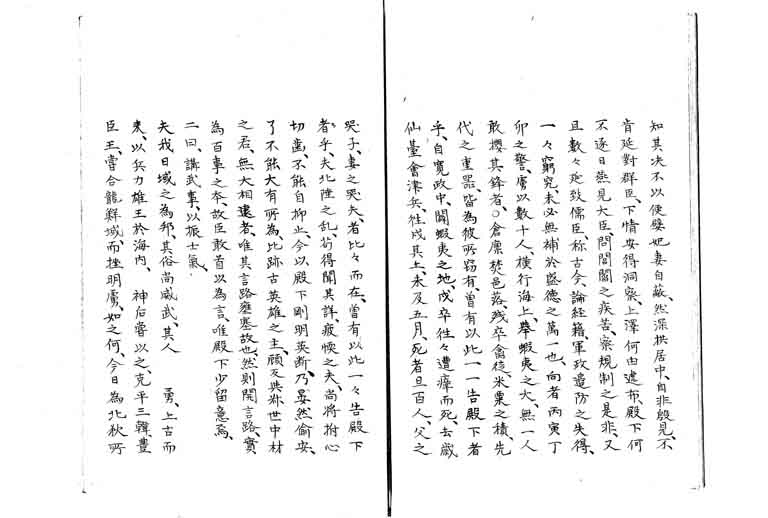 知其决不以便嬖妃妾自蔽、然深拱居中、自非殷見、不
肯延對群臣、下情安得洞察、上澤何由遽布、殿下何
不逐日燕見大臣、問閭閻之疾苦、察規制之是非、又
且數々延致儒臣、称古今、論経籍、軍政邊防之失得、
一々窮究、未必無補於盛德之萬一也、向者丙寅丁
卯之警、虜以數十人、横行海上、舉蝦夷之大、無一人
敢攖其鋒者○倉廩焚邑落残、卒禽徒、米粟之積、先
代之重器、皆為彼所窃有、曽有以此一一告殿下者
乎、自寛政中、闢蝦夷之地、戍卒往々遭瘴而死、去歳
仙臺會津兵、往戍其土、未及五月、死者旦百人、父之
哭子、妻之哭夫、者比々而在、曽有以此一々告殿下
者乎、夫北陲之乱、苟得聞其詳、疲愞之夫、尚將拊心
切齒、不能自抑止、今以殿下剛明英断、乃晏然偷安、
了不能大有所為、比跡古英雄之主、顧反與弥世中材
之君、無大相遠者、唯其言路壅塞故也、然則開言路、實
為百事之本、故臣敢首以為言、唯殿下少留意焉、
二曰、講武事、以振士氣、
夫我日域之為邦、其俗尚威武、其人 勇、上古而
来、以兵力雄王於海内、 神后嘗以之、克平三韓、豊
臣王、嘗合龍鮮域、而挫明虜、如之何、今日為北狄所